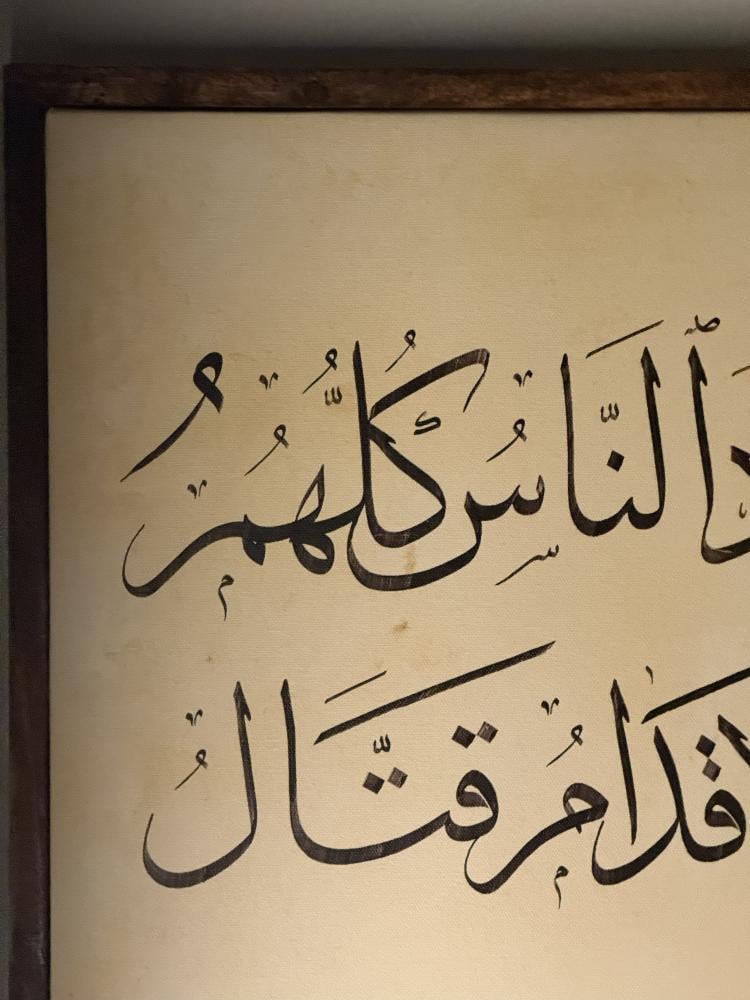 ٱلنَّاسُ كُلُّهُمُ
قدامُ قَتَّالُ